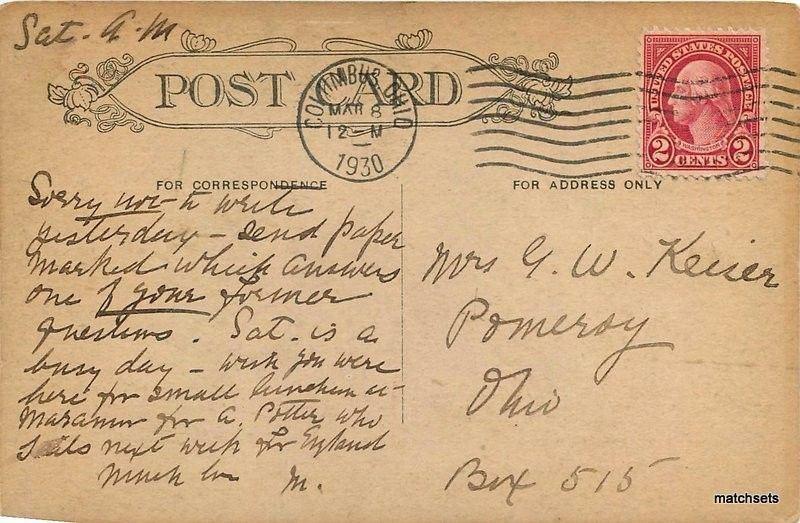 Sat. A.M
POST CARD
COLUMBUS, OHIO
MAR 8
12 M
1930
UNITED STATES POSTAGE
WASHINGTON
2 CENTS 2
FOR CORRESPONDENCE
FOR ADDRESS ONLY
Sorry not to write
yesterday - send paper
marked which answers
one of your former
questions. Sat. is a
busy day - wish you were
here for small luncheon at
Maramor for A. Potter who
sails next week for England
Much love M.
Mrs G. W. Keiser
Pomeroy
Ohio
Box 515
matchsets